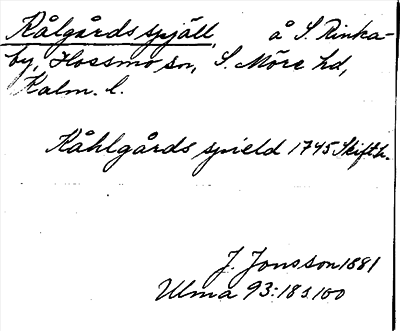 Kålgårdsspjäll, å S. Rinka-
by, Hossmo sn, S. Möre hd,
Kalm. l.
Kåhlgårds spield 1745 Skiftsh.
J. Jonsson 1881
Ulma 93:18 s. 100